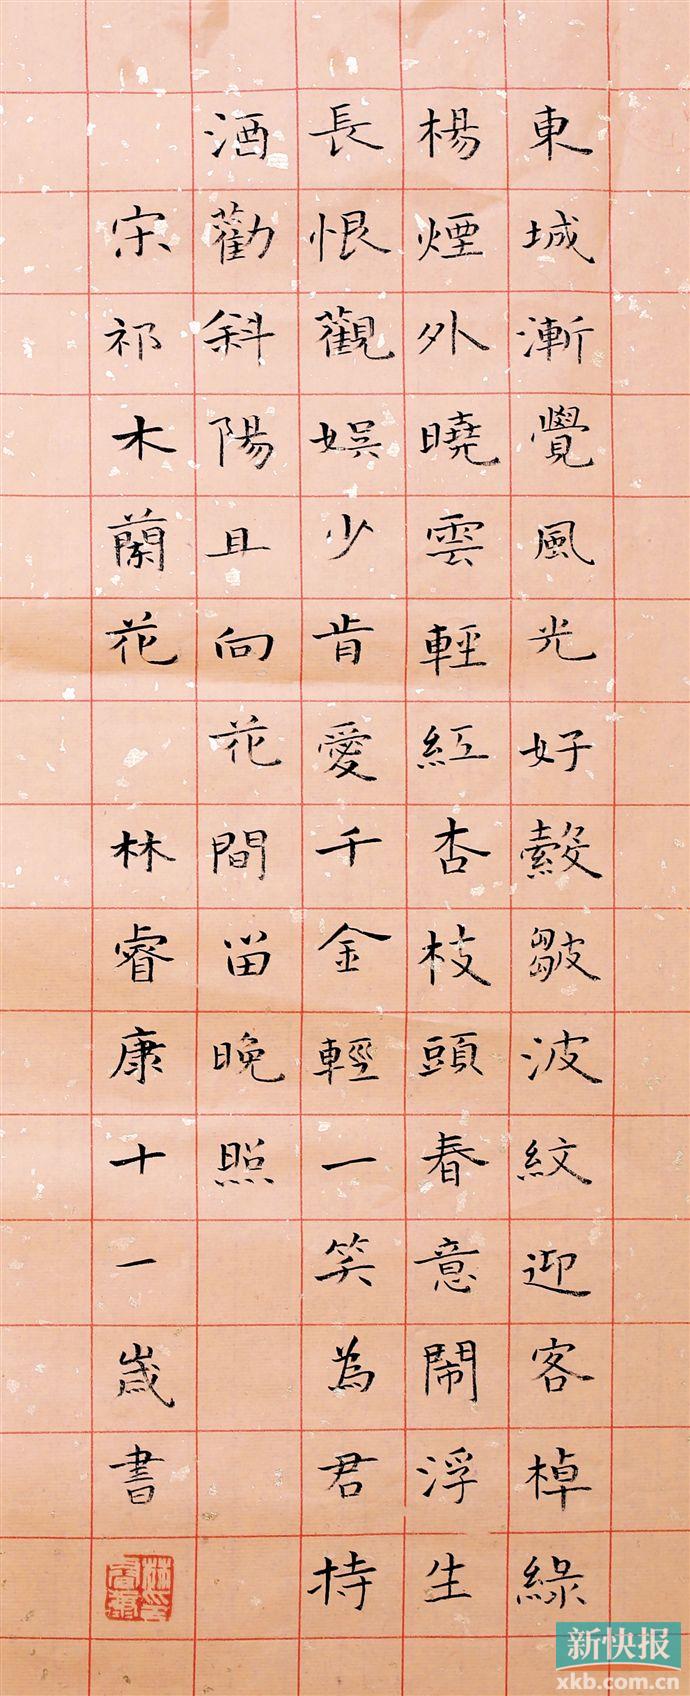 東城漸覺風光好縠皺波紋迎客棹綠
楊煙外曉雲輕紅杏枝頭春意鬧浮生
長恨觀娛少肯愛千金輕一笑為君持
酒勸斜陽且向花間畱晚照
宋祁木蘭花 林睿康十一歲書
新快报
xkb.com.cn